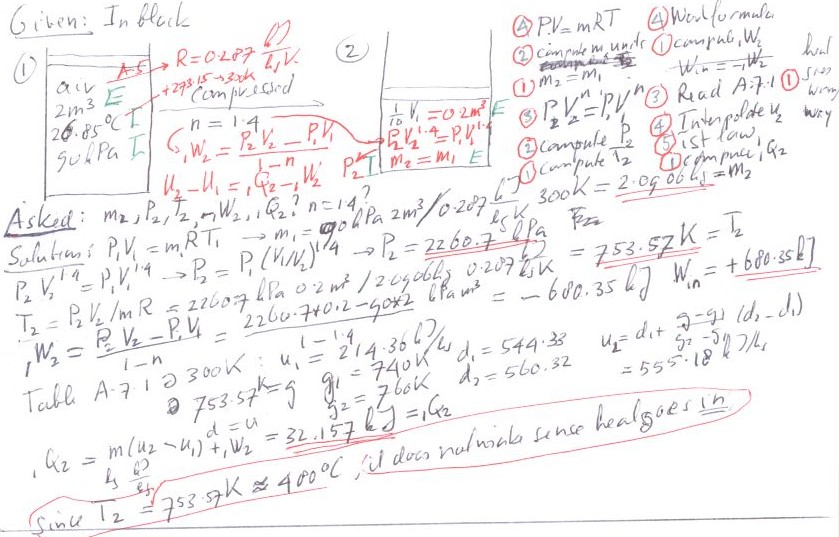 Given: In black
①
air E
2m³
26.85°C I
90kPa I
A-5
R = 0.287 kJ/kg K
+273.15 → 300K
Compressed
n = 1.4
₁W₂ = P₂V₂ - P₁V₁ / 1-n
U₂ - U₁ = ₁Q₂ - ₁W₂
②
1/10 V₁ = 0.2m³ E
P₂V₂^1.4 = P₁V₁^1.4
P₂ I
m₂ = m₁ E
④ PV = mRT
② compute m, units
① m₂ = m₁
③ P₂V₂ⁿ = P₁V₁ⁿ
② compute P₂
① compute T₂
④ Work formula
① compute ₁W₂
Win = -₁W₂
③ Read A.7.1 ①
④ Interpolate u₂
⑤ 1st law
① compute ₁Q₂
heat
sign
wrong
way
Asked: m₂, P₂, T₂, -₁W₂, ₁Q₂? n=1.4?
Solution: P₁V₁ = m₁RT₁ → m₁ = 90kPa 2m³ / 0.287 kJ/kg K 300K = 2.0906kg = m₂
P₂V₂^1.4 = P₁V₁^1.4 → P₂ = P₁(V₁/V₂)^1.4 → P₂ = 2260.7 kPa
T₂ = P₂V₂/mR = 2260.7 kPa 0.2m³ / 2.0906kg 0.287 kJ/kg K = 753.57K = T₂
₁W₂ = P₂V₂ - P₁V₁ / 1-n = 2260.7*0.2 - 90*2 / 1-1.4 kPa m³ = -680.35 kJ Win = +680.35kJ
Table A.7.1 @ 300K : u₁ = 214.36 kJ/kg
@ 753.57K = g g₁ = 740K d₁ = 544.33 u₂ = d₁ + g-g₁/g₂-g₁ (d₂-d₁)
d = u g₂ = 760K d₂ = 560.32 = 555.18 kJ/kg
₁Q₂ = m(u₂-u₁) + ₁W₂ = 32.157 kJ = ₁Q₂
kg kJ/kg
Since T₂ = 753.57K ≈ 480°C, it does not make sense heat goes in